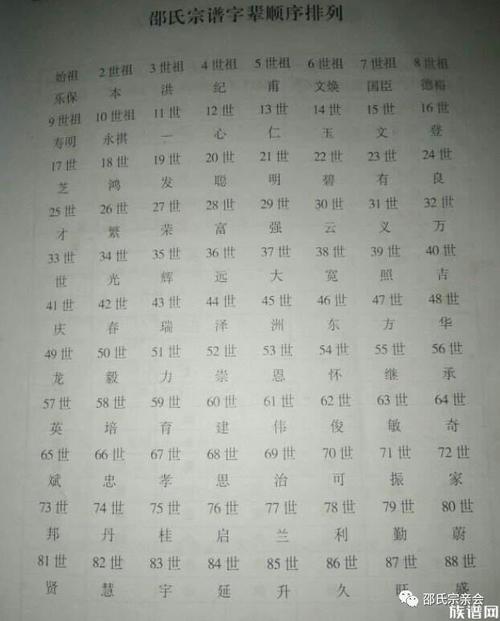 邵氏宗谱字辈顺序排列
始祖 2世祖 3世祖 4世祖 5世祖 6世祖 7世祖 8世祖
乐保 本 洪 纪 甫 文焕 国臣 德裕
9世祖 10世祖 11世 12世 13世 14世 15世 16世
寿明 永祺 一 心 仁 玉 文 登
17世 18世 19世 20世 21世 22世 23世 24世
芝 鸿 发 聪 明 碧 有 良
25世 26世 27世 28世 29世 30世 31世 32世
才 繁 荣 富 强 云 义 万
33世 34世 35世 36世 37世 38世 39世 40世
世 光 辉 远 大 宽 照 吉
41世 42世 43世 44世 45世 46世 47世 48世
庆 春 瑞 泽 洲 东 方 华
49世 50世 51世 52世 53世 54世 55世 56世
龙 毅 力 崇 恩 怀 继 承
57世 58世 59世 60世 61世 62世 63世 64世
英 培 育 建 伟 俊 敏 奇
65世 66世 67世 68世 69世 70世 71世 72世
斌 忠 孝 思 治 可 振 家
73世 74世 75世 76世 77世 78世 79世 80世
邦 丹 桂 启 兰 利 勤 蔚
81世 82世 83世 84世 85世 86世 87世 88世
贤 慧 宇 延 升 久 旺 盛
邵氏宗亲会
族谱网